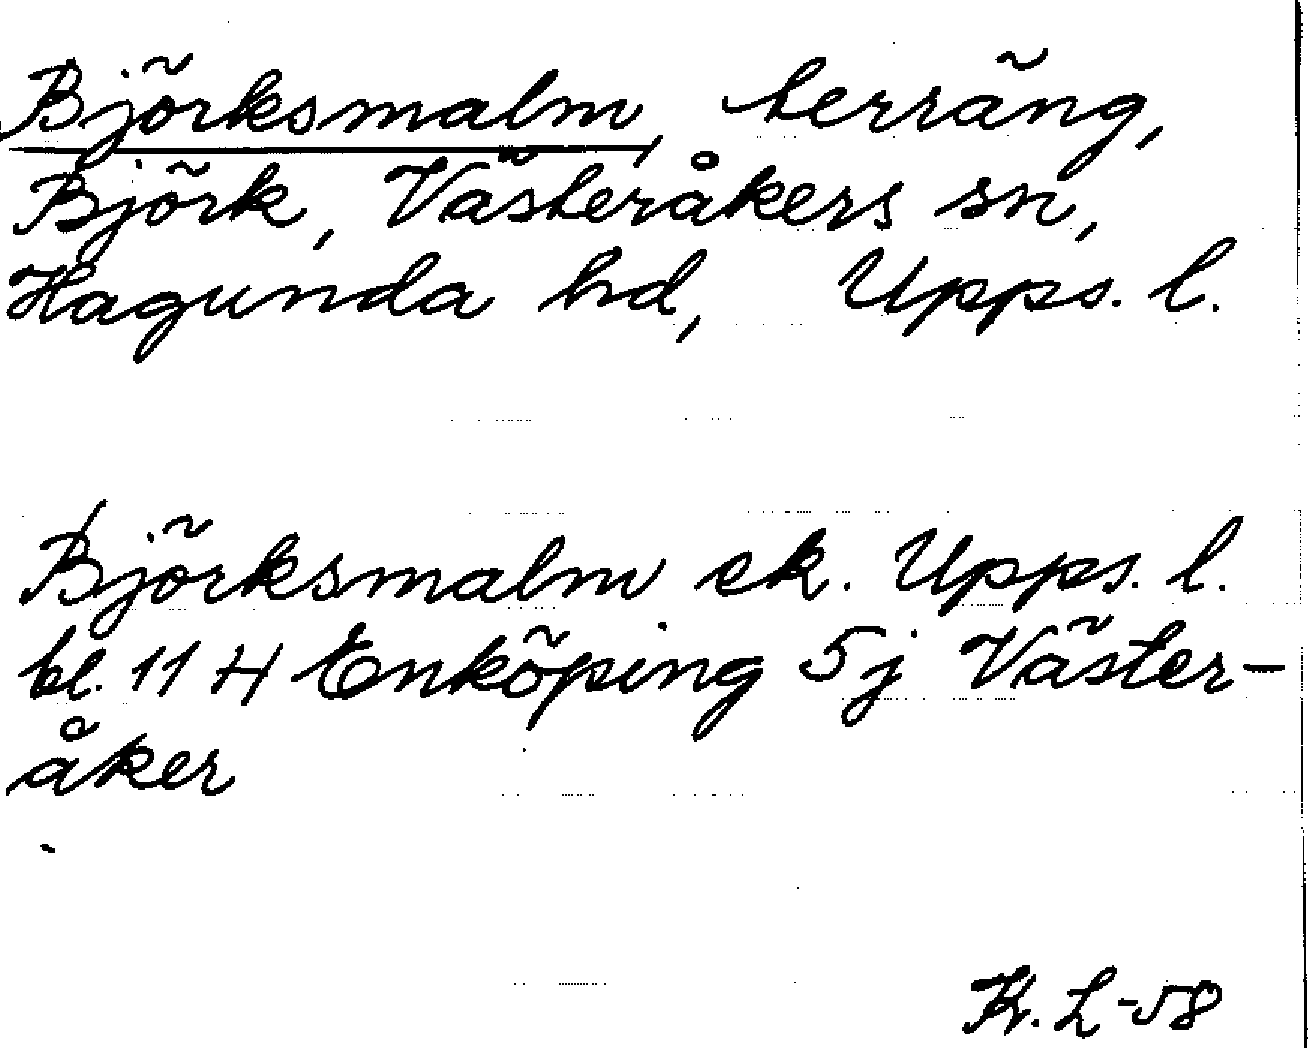 Björksmalm, terräng,
Björk, Västeråkers sn,
Hagunda hd, Upps. l.
Björksmalm ek. Upps. l.
bl. 11 H Enköping 5j Väster-
åker
K. L-58